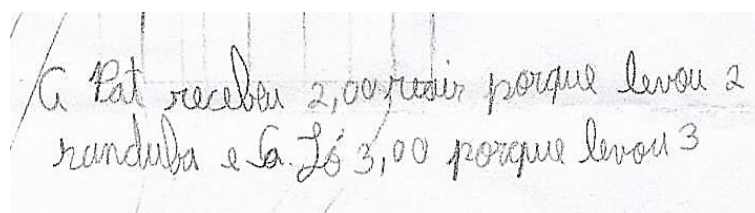 A Pat recebeu 2,00 reais porque levou 2
randuba e Sa. Jó 3,00 porque levou 3